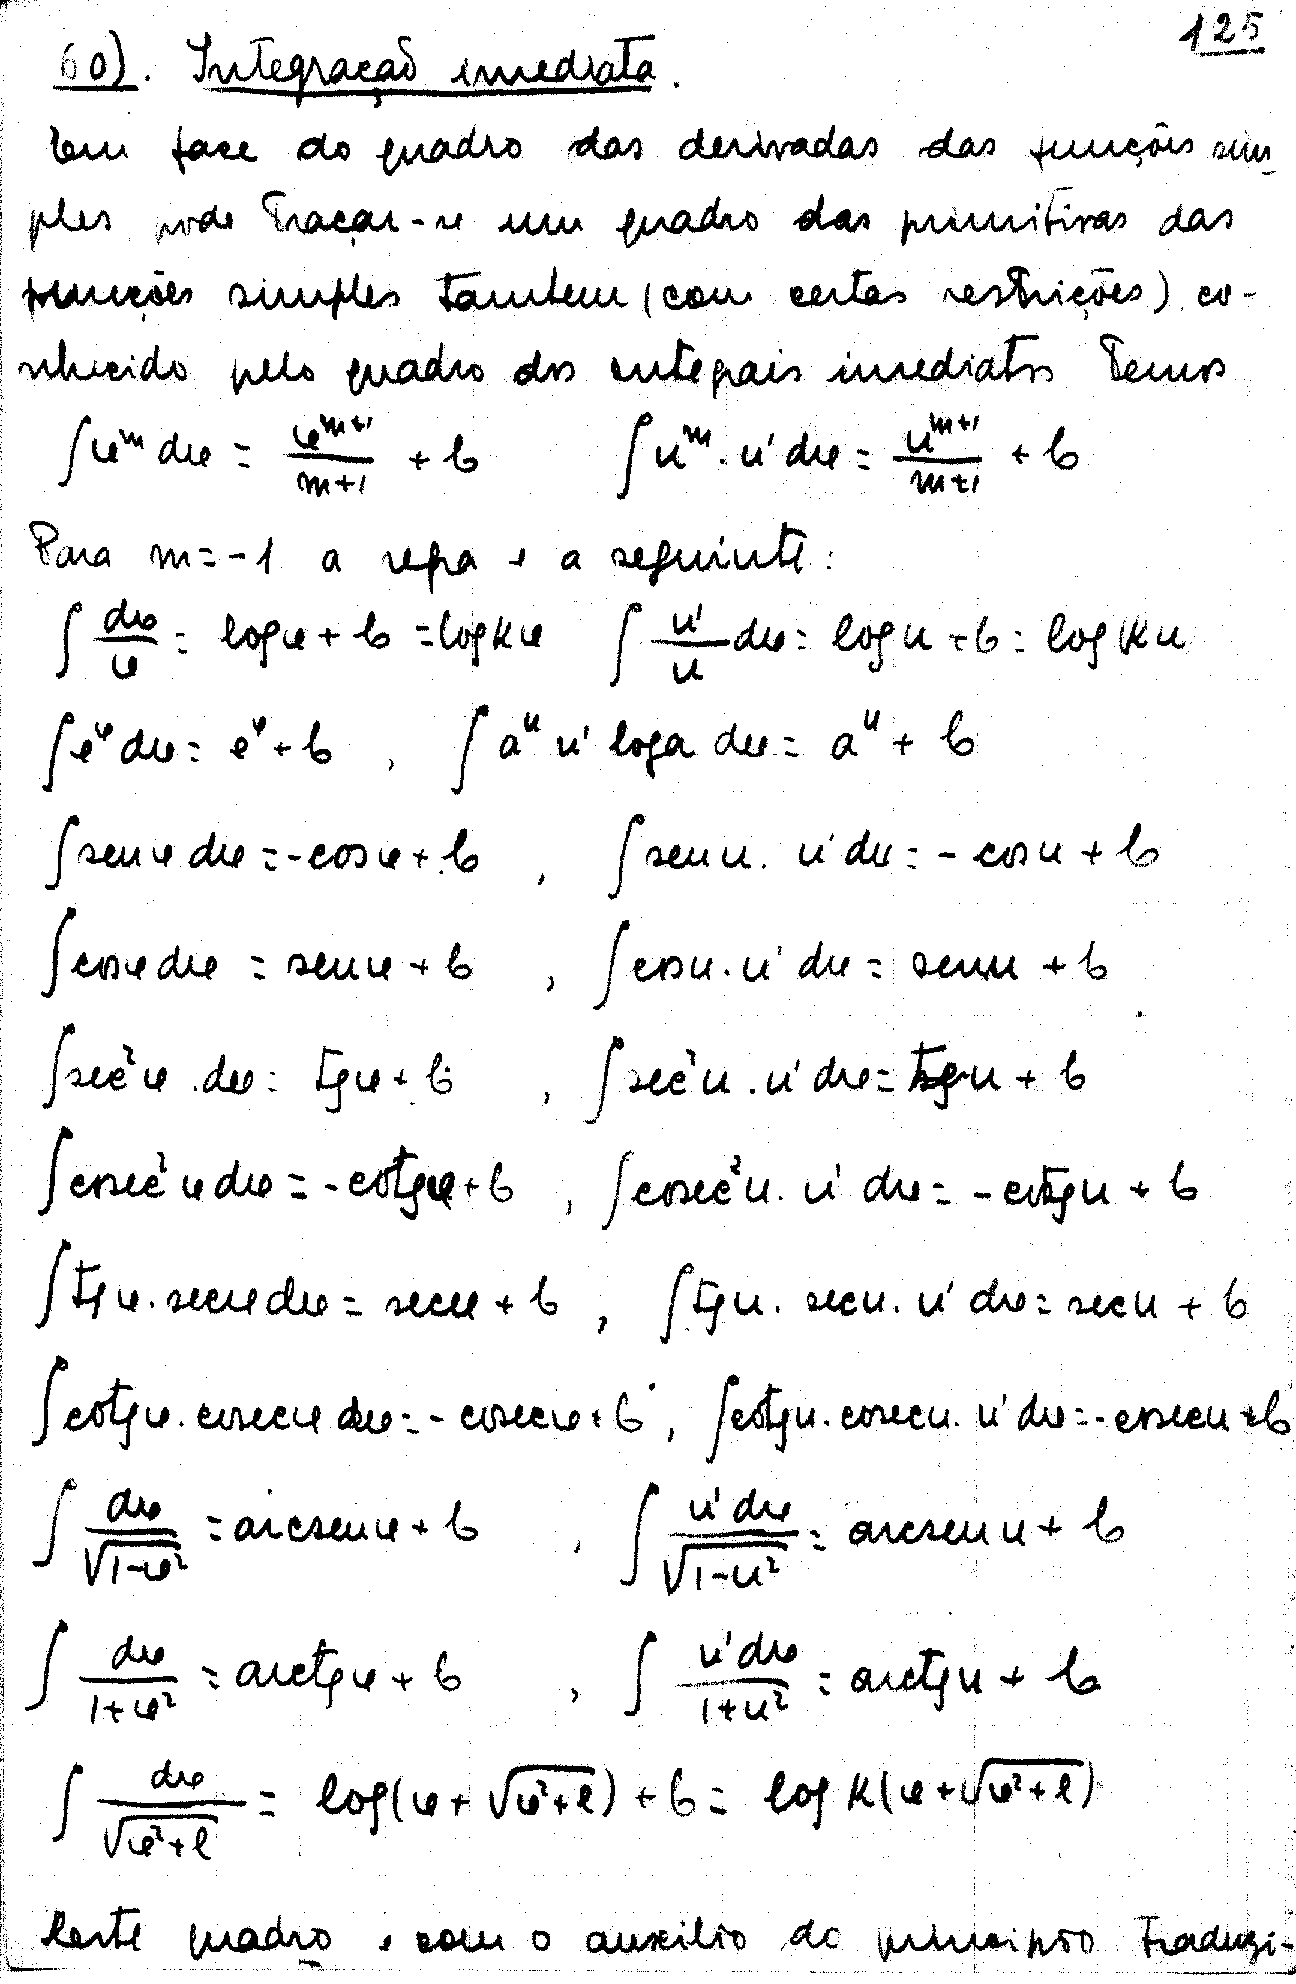 125
60). Integração imediata.
Em face do quadro das derivadas das funções sim-
ples pode traçar-se um quadro das primitivas das
funções simples tambem (com certas restrições) co-
nhecido pelo quadro dos integrais imediatos Temos
∫x^m dx = x^(m+1)/(m+1) + b    ∫u^m . u' dx = u^(m+1)/(m+1) + b
Para m = -1 a regra é a seguinte:
∫dx/x = log x + b = log K x    ∫u'/u dx = log u + b = log K u
∫e^x dx = e^x + b , ∫a^u u' log a dx = a^u + b
∫sen x dx = -cos x + b , ∫sen u . u' dx = -cos u + b
∫cos x dx = sen x + b , ∫cos u . u' dx = sen u + b
∫sec²x . dx = tg x + b , ∫sec²u . u' dx = tg u + b
∫cosec²x dx = -cotg x + b , ∫cosec²u . u' dx = -cotg u + b
∫tg x . sec x dx = sec x + b , ∫tg u . sec u . u' dx = sec u + b
∫cotg x . cosec x dx = -cosec x + b , ∫cotg u . cosec u . u' dx = -cosec u + b
∫dx/√(1-x²) = arcsen x + b , ∫u' dx/√(1-u²) = arcsen u + b
∫dx/(1+x²) = arctg x + b , ∫u' dx/(1+u²) = arctg u + b
∫dx/√(x²+l) = log(x + √(x²+l)) + b = log K(x + √(x²+l))
Neste quadro e com o auxilio do principio traduzi-